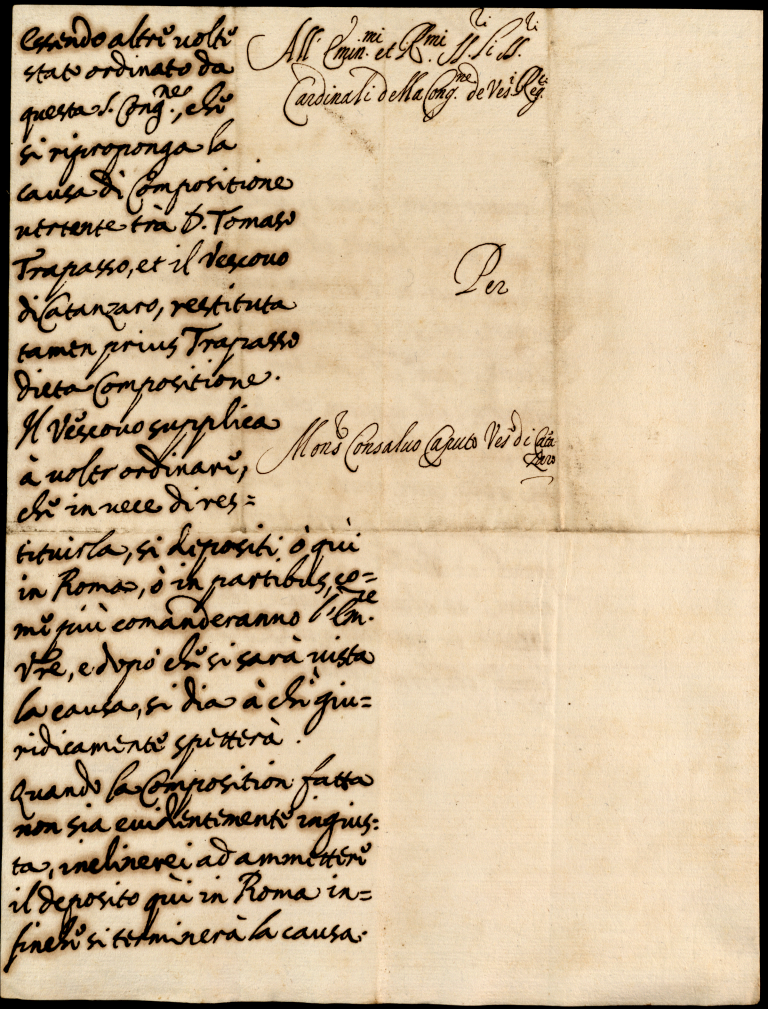 Essendo altre volte
stato ordinato da
questa S. Cong.ne, che
si riproponga la
causa di Compositione
vertente trà D. Tomaso
Trapasso, et il Vescovo
di Catanzaro, restituta
tamen prius Trapasso
dicta Compositione.
Il Vescovo supplica
à voler ordinare,
che in vece di res=
tituirla, si depositi ò quì
in Roma, ò in partibus, co=
me più comanderanno l'Em.ze
Vre, e dopò che si sarà vista
la causa, si dia à chi giu=
ridicamente spetterà.
Quando la Composition fatta
non sia evidentemente ingius=
ta, inclinerei ad ammettere
il deposito quì in Roma in=
sinche si terminerà la causa.
All' Emin.mi et R.mi SS.ri Li SS.ri
Cardinali della Cong.ne de Ves.i Reg.ri
Per
Mons.r Consalvo Caputo Ves.o di Cata
zaro